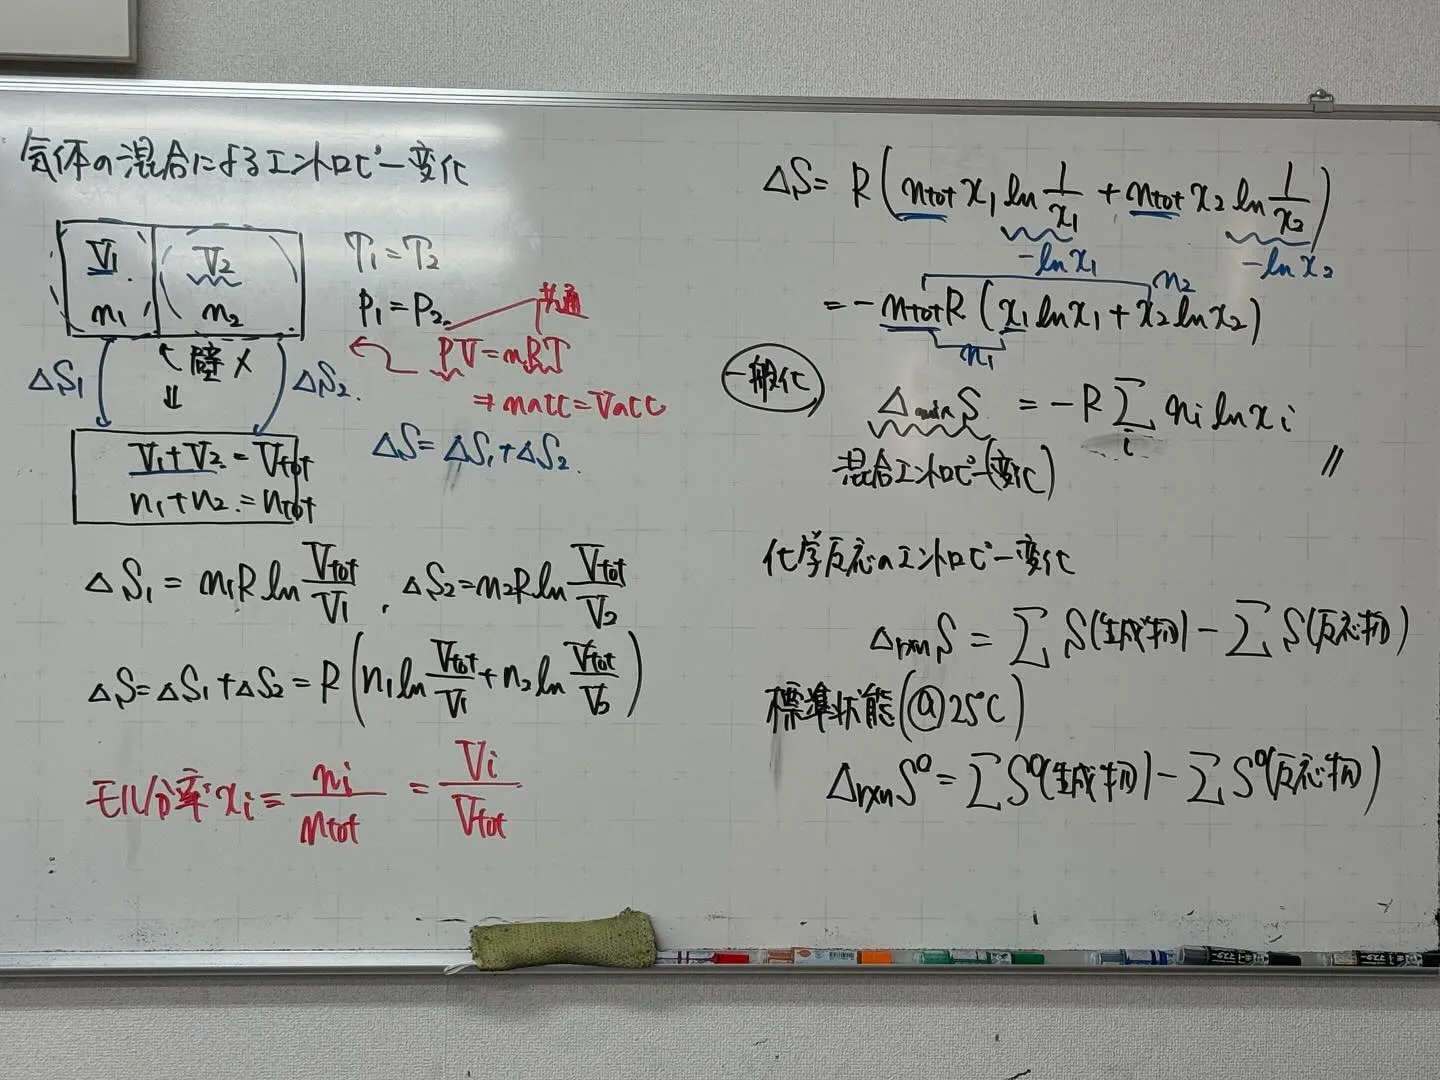 気体の混合によるエントロピー変化
V1
n1
V2
n2
T1=T2
P1=P2
共通
PV=nRT
⇒n1:n2=V1:V2
ΔS1
壁 ×
⇓
ΔS2
V1+V2=Vtot
n1+n2=ntot
ΔS=ΔS1+ΔS2
ΔS1=n1R ln Vtot/V1 , ΔS2=n2R ln Vtot/V2
ΔS=ΔS1+ΔS2=R(n1 ln Vtot/V1+n2 ln Vtot/V2)
モル分率 xi=ni/ntot=Vi/Vtot
ΔS=R(ntot x1 ln 1/x1+ntot x2 ln 1/x2)
-ln x1
-ln x2
n2
=-ntotR(x1 ln x1+x2 ln x2)
n1
一般化
ΔmixS=-RΣi ni ln xi
混合エントロピー(変化)
//
化学反応のエントロピー変化
ΔrxnS=ΣS(生成物)-ΣS(反応物)
標準状態(@25℃)
ΔrxnS°=ΣS°(生成物)-ΣS°(反応物)